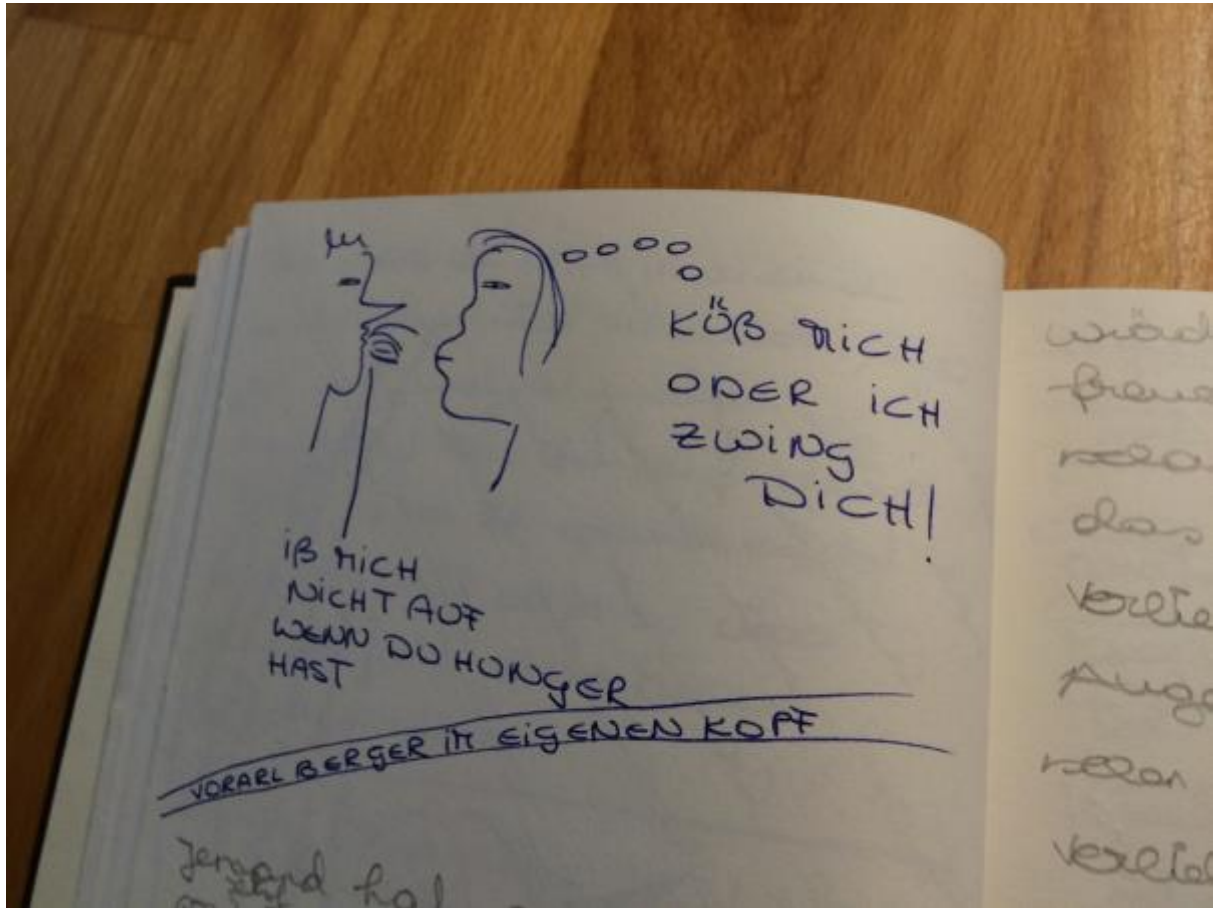 KÜß MICH
ODER ICH
ZWING
DICH!
Iß MICH
NICHT AUF
WENN DU HUNGER
HAST
VORARLBERGER IM EIGENEN KOPF
Jemand hat
das